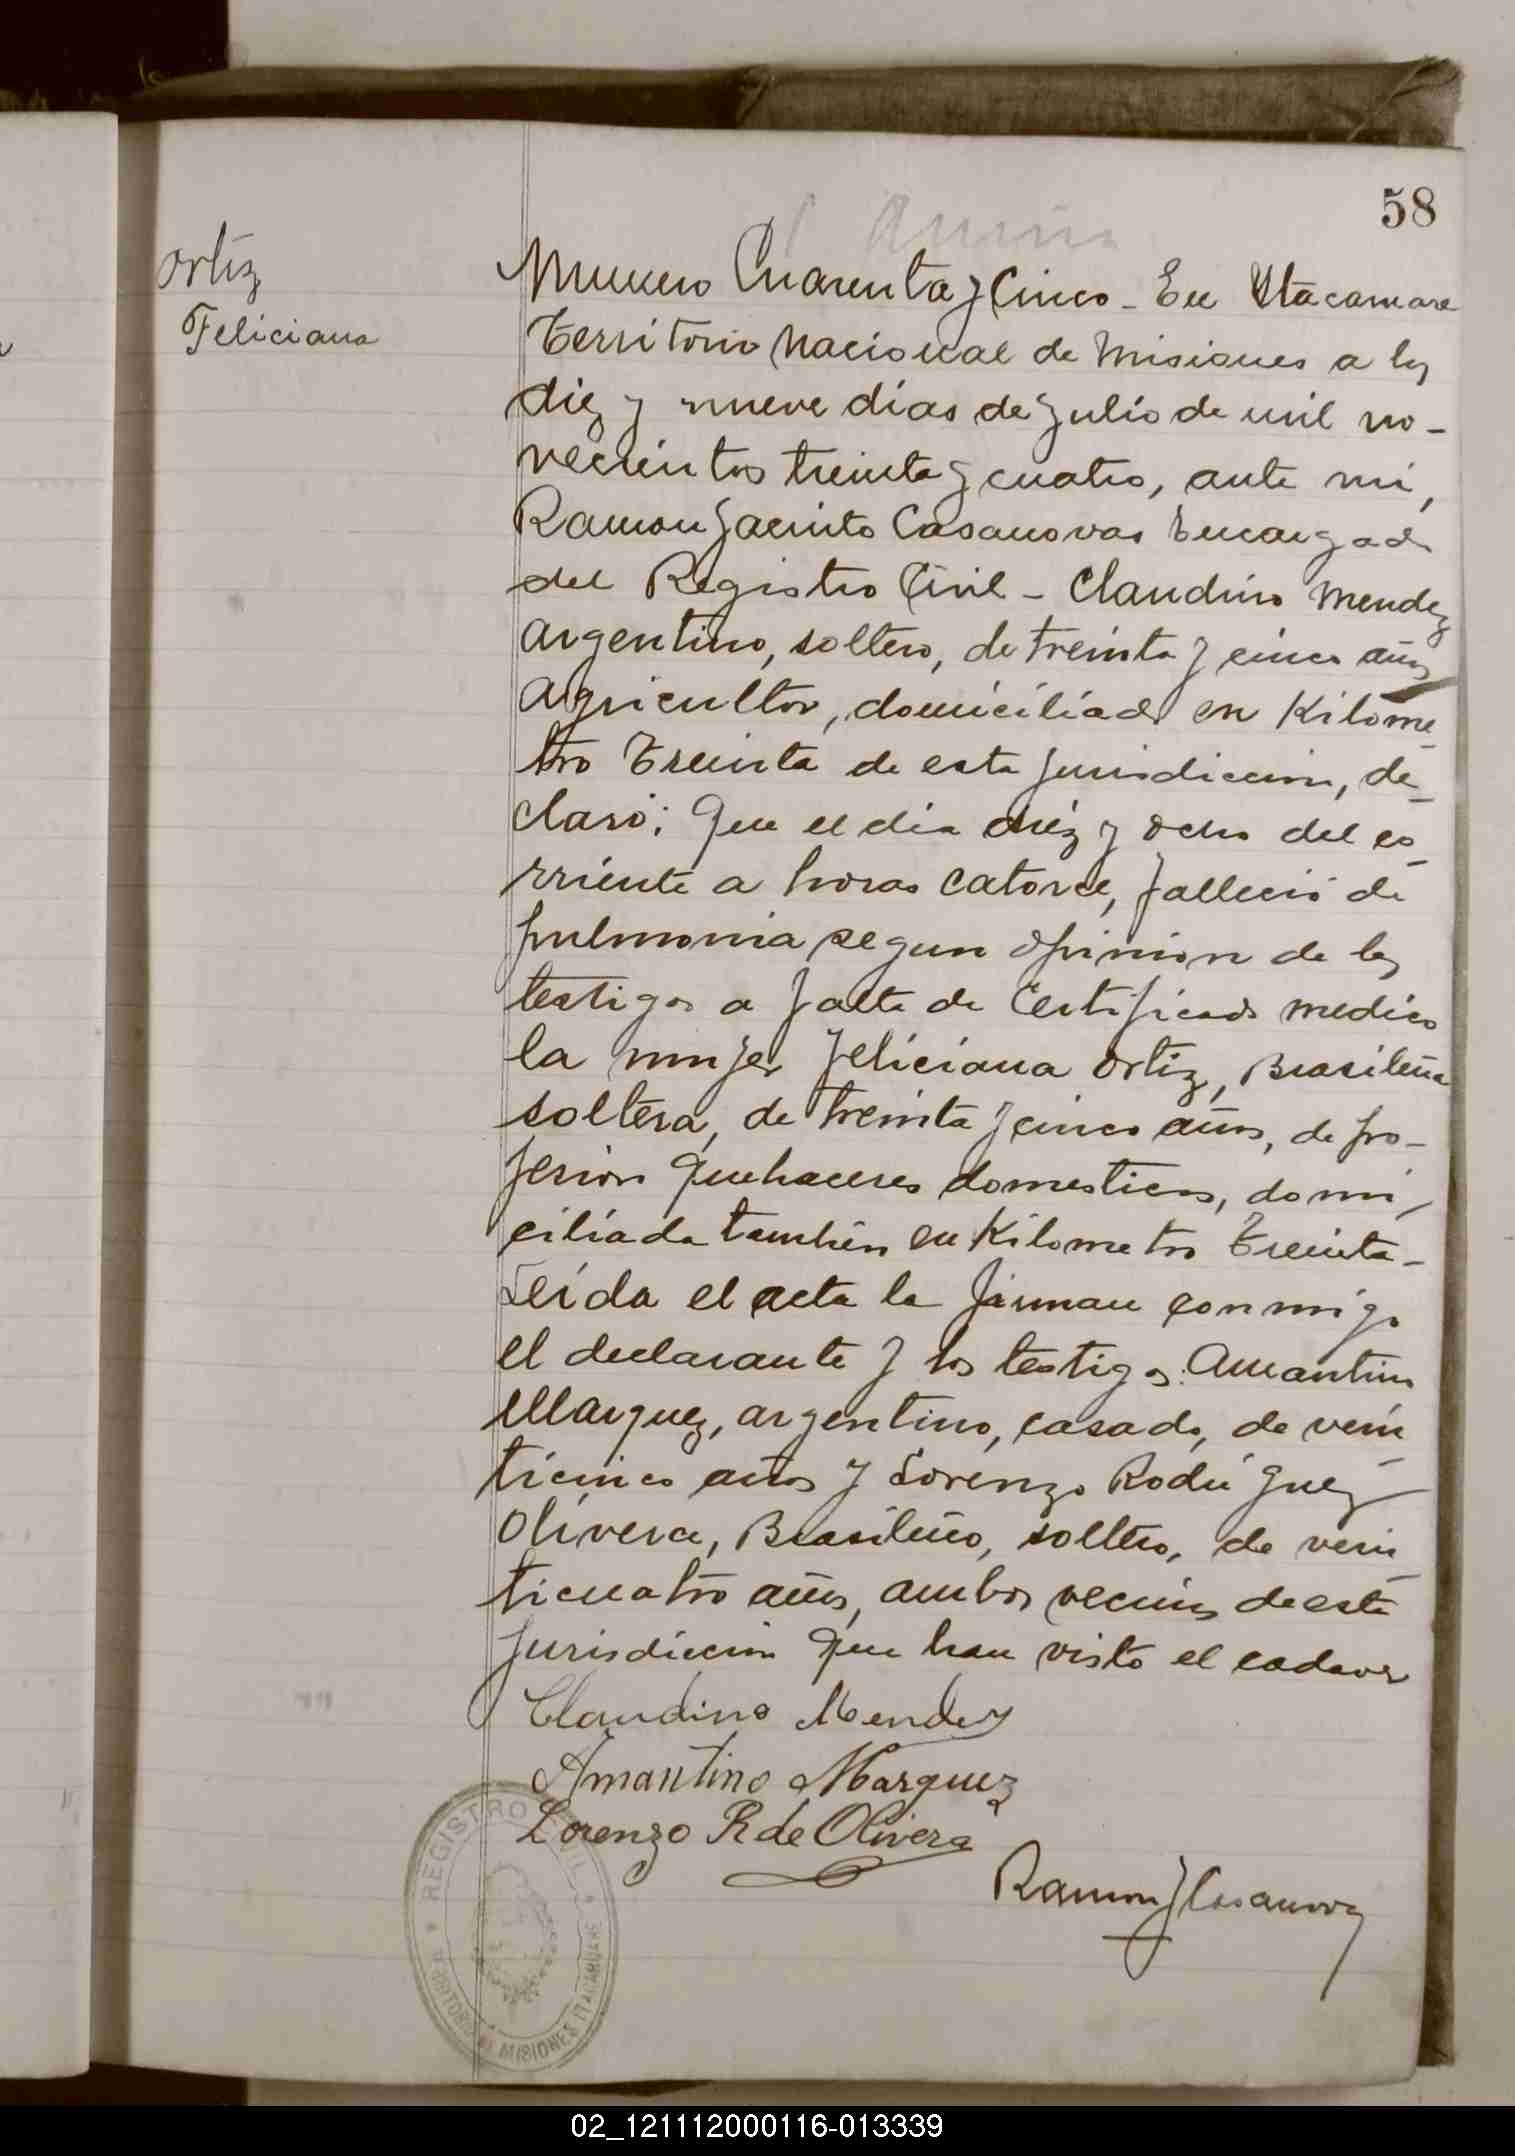 58
Ortiz
Feliciana
Numero Cuarenta y Cinco - En Itacaruare
Territorio Nacional de Misiones a los
diez y nueve dias de Julio de mil no-
vecientos treinta y cuatro, ante mi,
Ramon Jacinto Casanovas Encargado
del Registro Civil - Claudino Mendez
argentino, soltero, de treinta y cinco años
agricultor, domiciliado en Kilome-
tro Treinta de esta jurisdiccion, de-
claró: Que el dia diéz y ocho del co-
rriente a horas catorce, falleció de
pulmonia segun opinion de los
testigos a falta de Certificado medico
la mujer Feliciana Ortiz, Brasileña
soltera, de treinta y cinco años, de pro-
fesion Quehaceres domesticos, domi-
ciliada tambien en Kilometro Treinta-
Leida el acta la firman conmigo
el declarante y los testigos: Amantino
Marquez, argentino, casado, de vein-
ticinco años y Lorenzo Rodriguez
Olivera, Brasileño, soltero, de vein-
ticuatro años, ambos vecinos de esta
jurisdiccion que han visto el cadaver
Claudino Mendez
Amantino Marquez
Lorenzo R de Olivera
Ramon J Casanovas
REGISTRO CIVIL
TERRITORIO DE MISIONES ITACARUARE
02_121112000116-013339